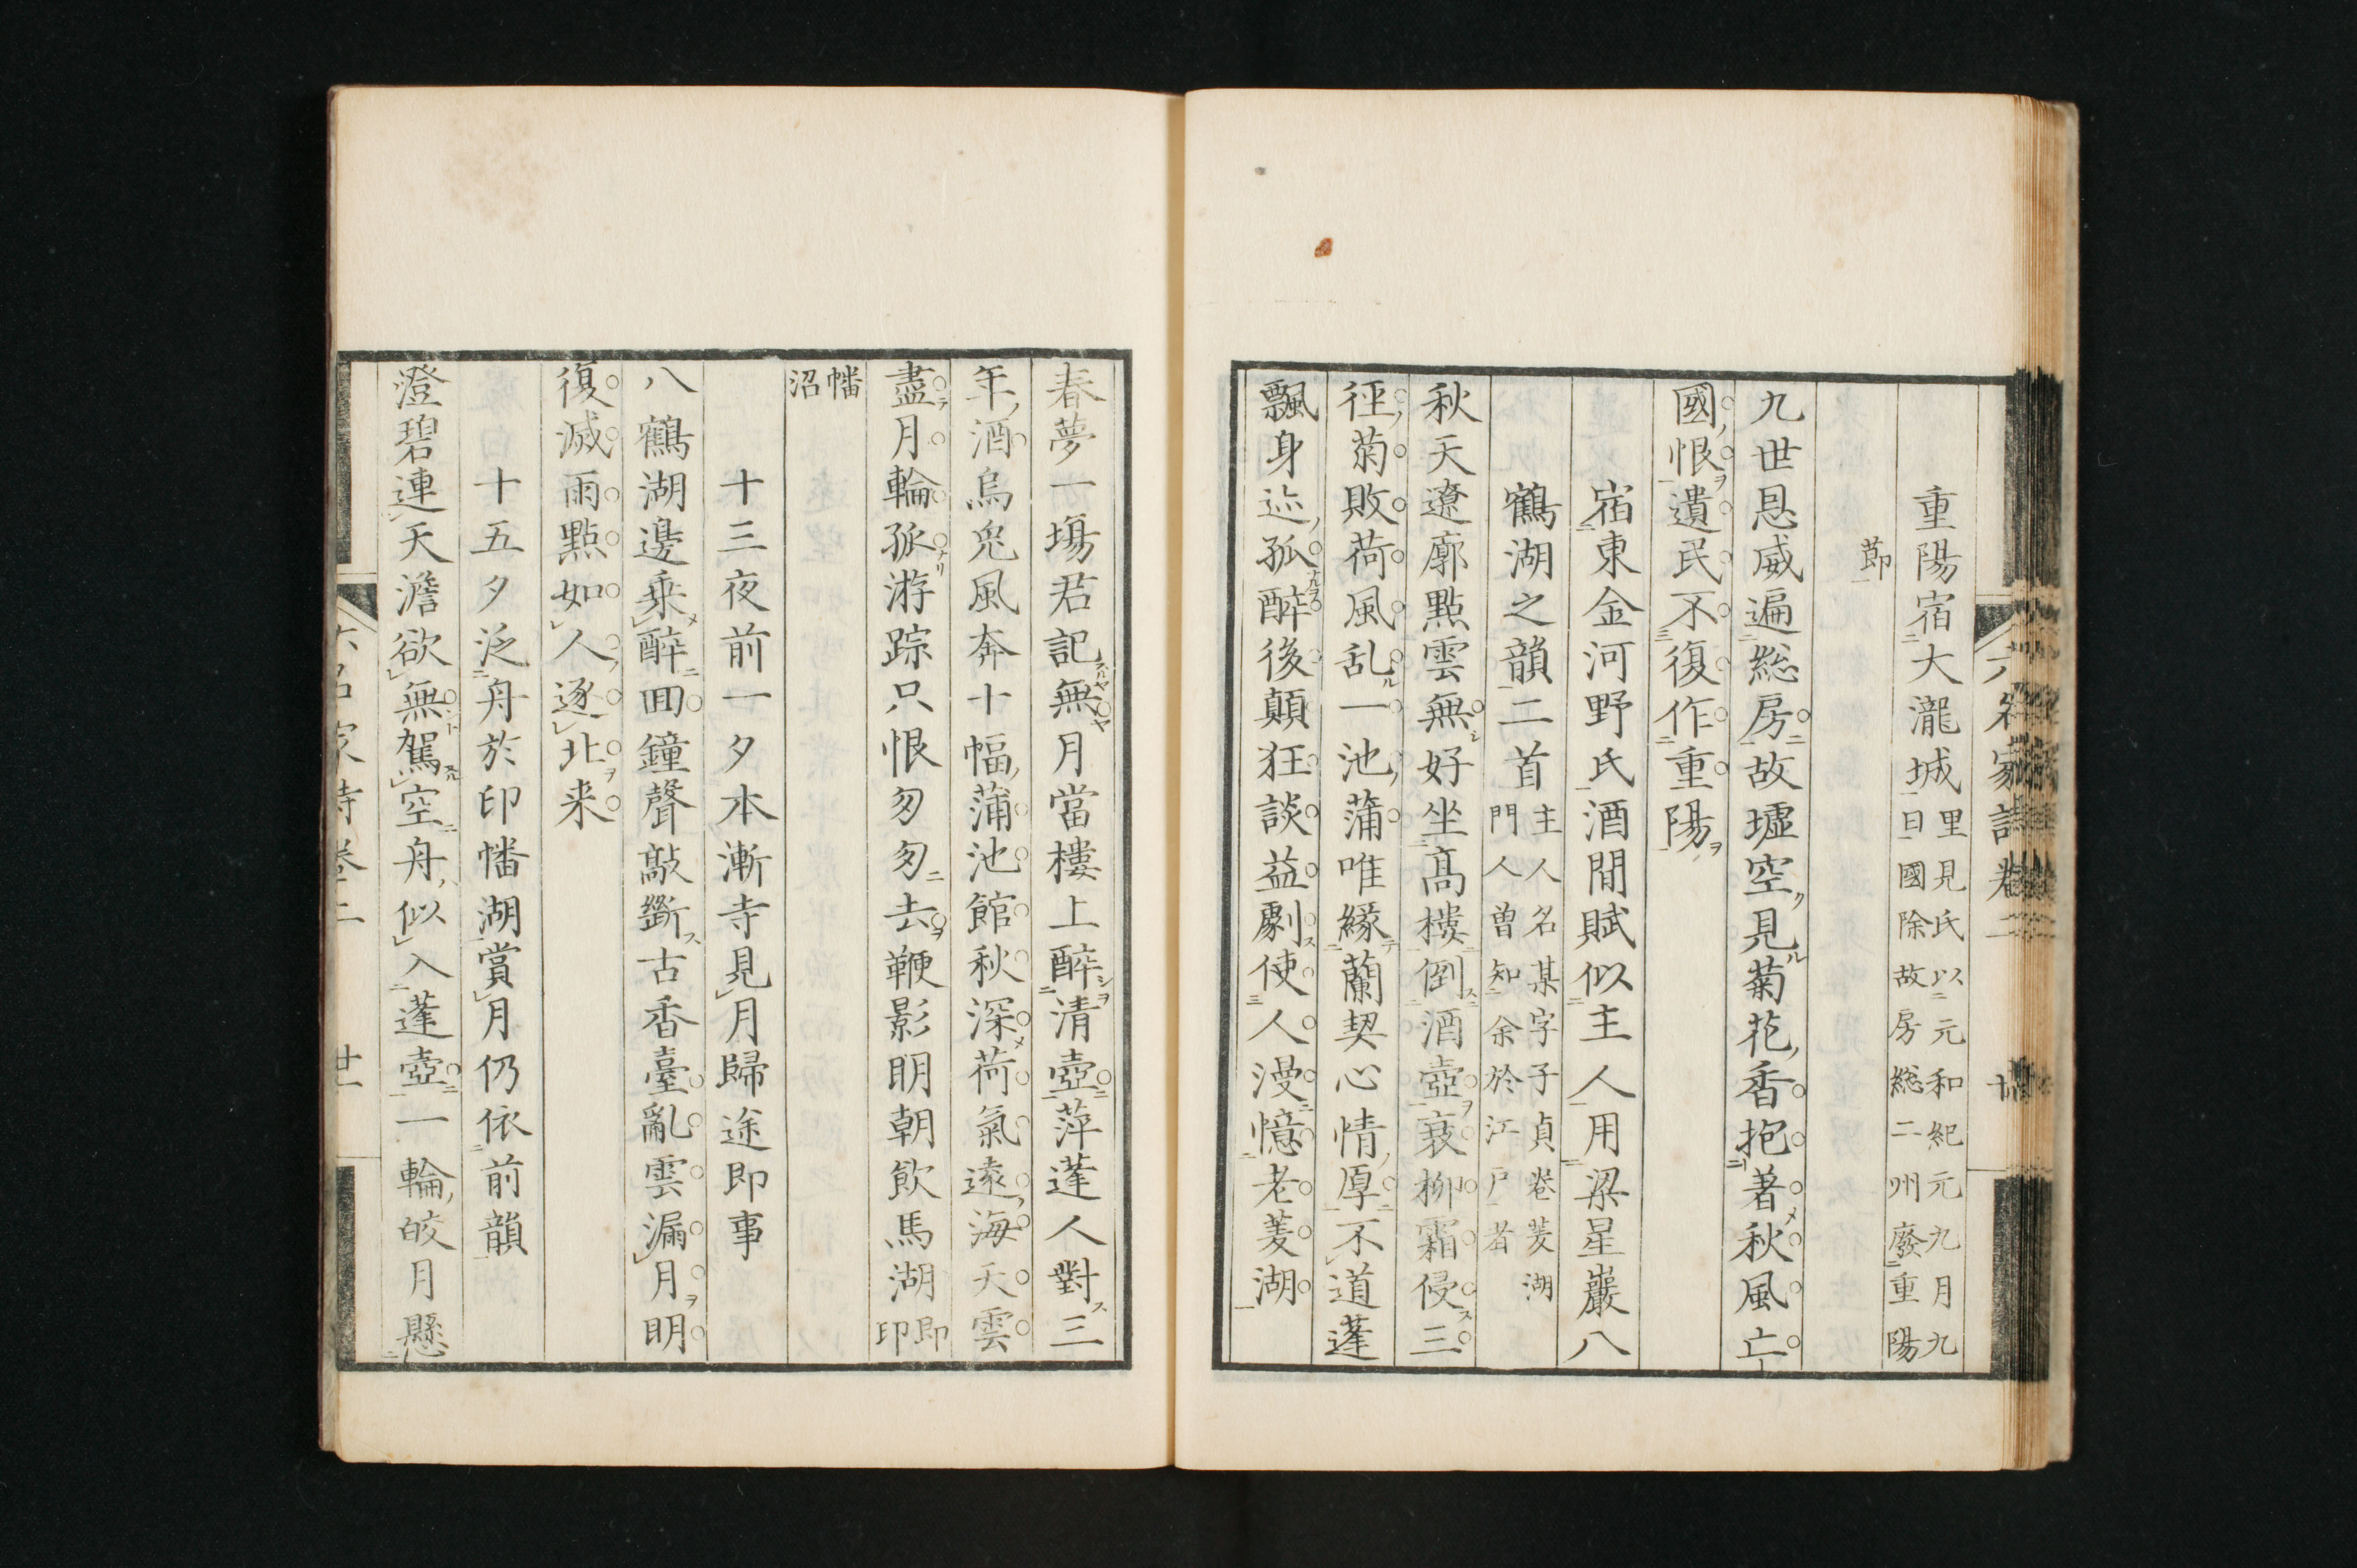 重陽宿大瀧城里見氏以元和紀元九月九日國除故房総二州廢重陽
節
九世恩威遍総房故墟空見菊花香抱著秋風亡
國恨遺民不復作重陽
宿東金河野氏酒間賦似主人用梁星巖八
鶴湖之韻二首主人名某字子貞卷菱湖門人曽知余於江戸者
秋天遼廓點雲無好坐髙樓倒酒壺衰柳霜侵三
徑菊敗荷風乱一池蒲唯緣蘭契心情厚不道蓬
飄身迹孤醉後顛狂談益劇使人漫憶老菱湖
春夢一塲君記無月當樓上醉清壺萍蓬人對三
年酒烏兎風奔十幅蒲池館秋深荷氣遠海天雲
盡月輪孤游踪只恨匆匆去鞭影明朝飲馬湖即印
幡沼
十三夜前一夕本漸寺見月歸途即事
八鶴湖邊乗醉回鐘聲敲斷古香臺亂雲漏月明
復滅雨點如人逐北来
十五夕泛舟於印幡湖賞月仍依前韻
澄碧連天澹欲無駕空舟似入蓬壺一輪皎月懸
六名家詩卷二 廿一